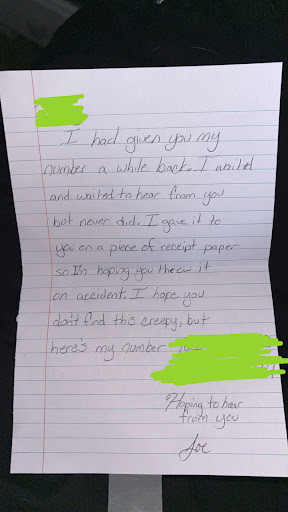 I had given you my
number a while back. I waited
and waited to hear from you
but never did. I gave it to
you on a piece of receipt paper
so I'm hoping you threw it
on accident. I hope you
don't find this creepy, but
here's my number
Hoping to hear
from you
Joe